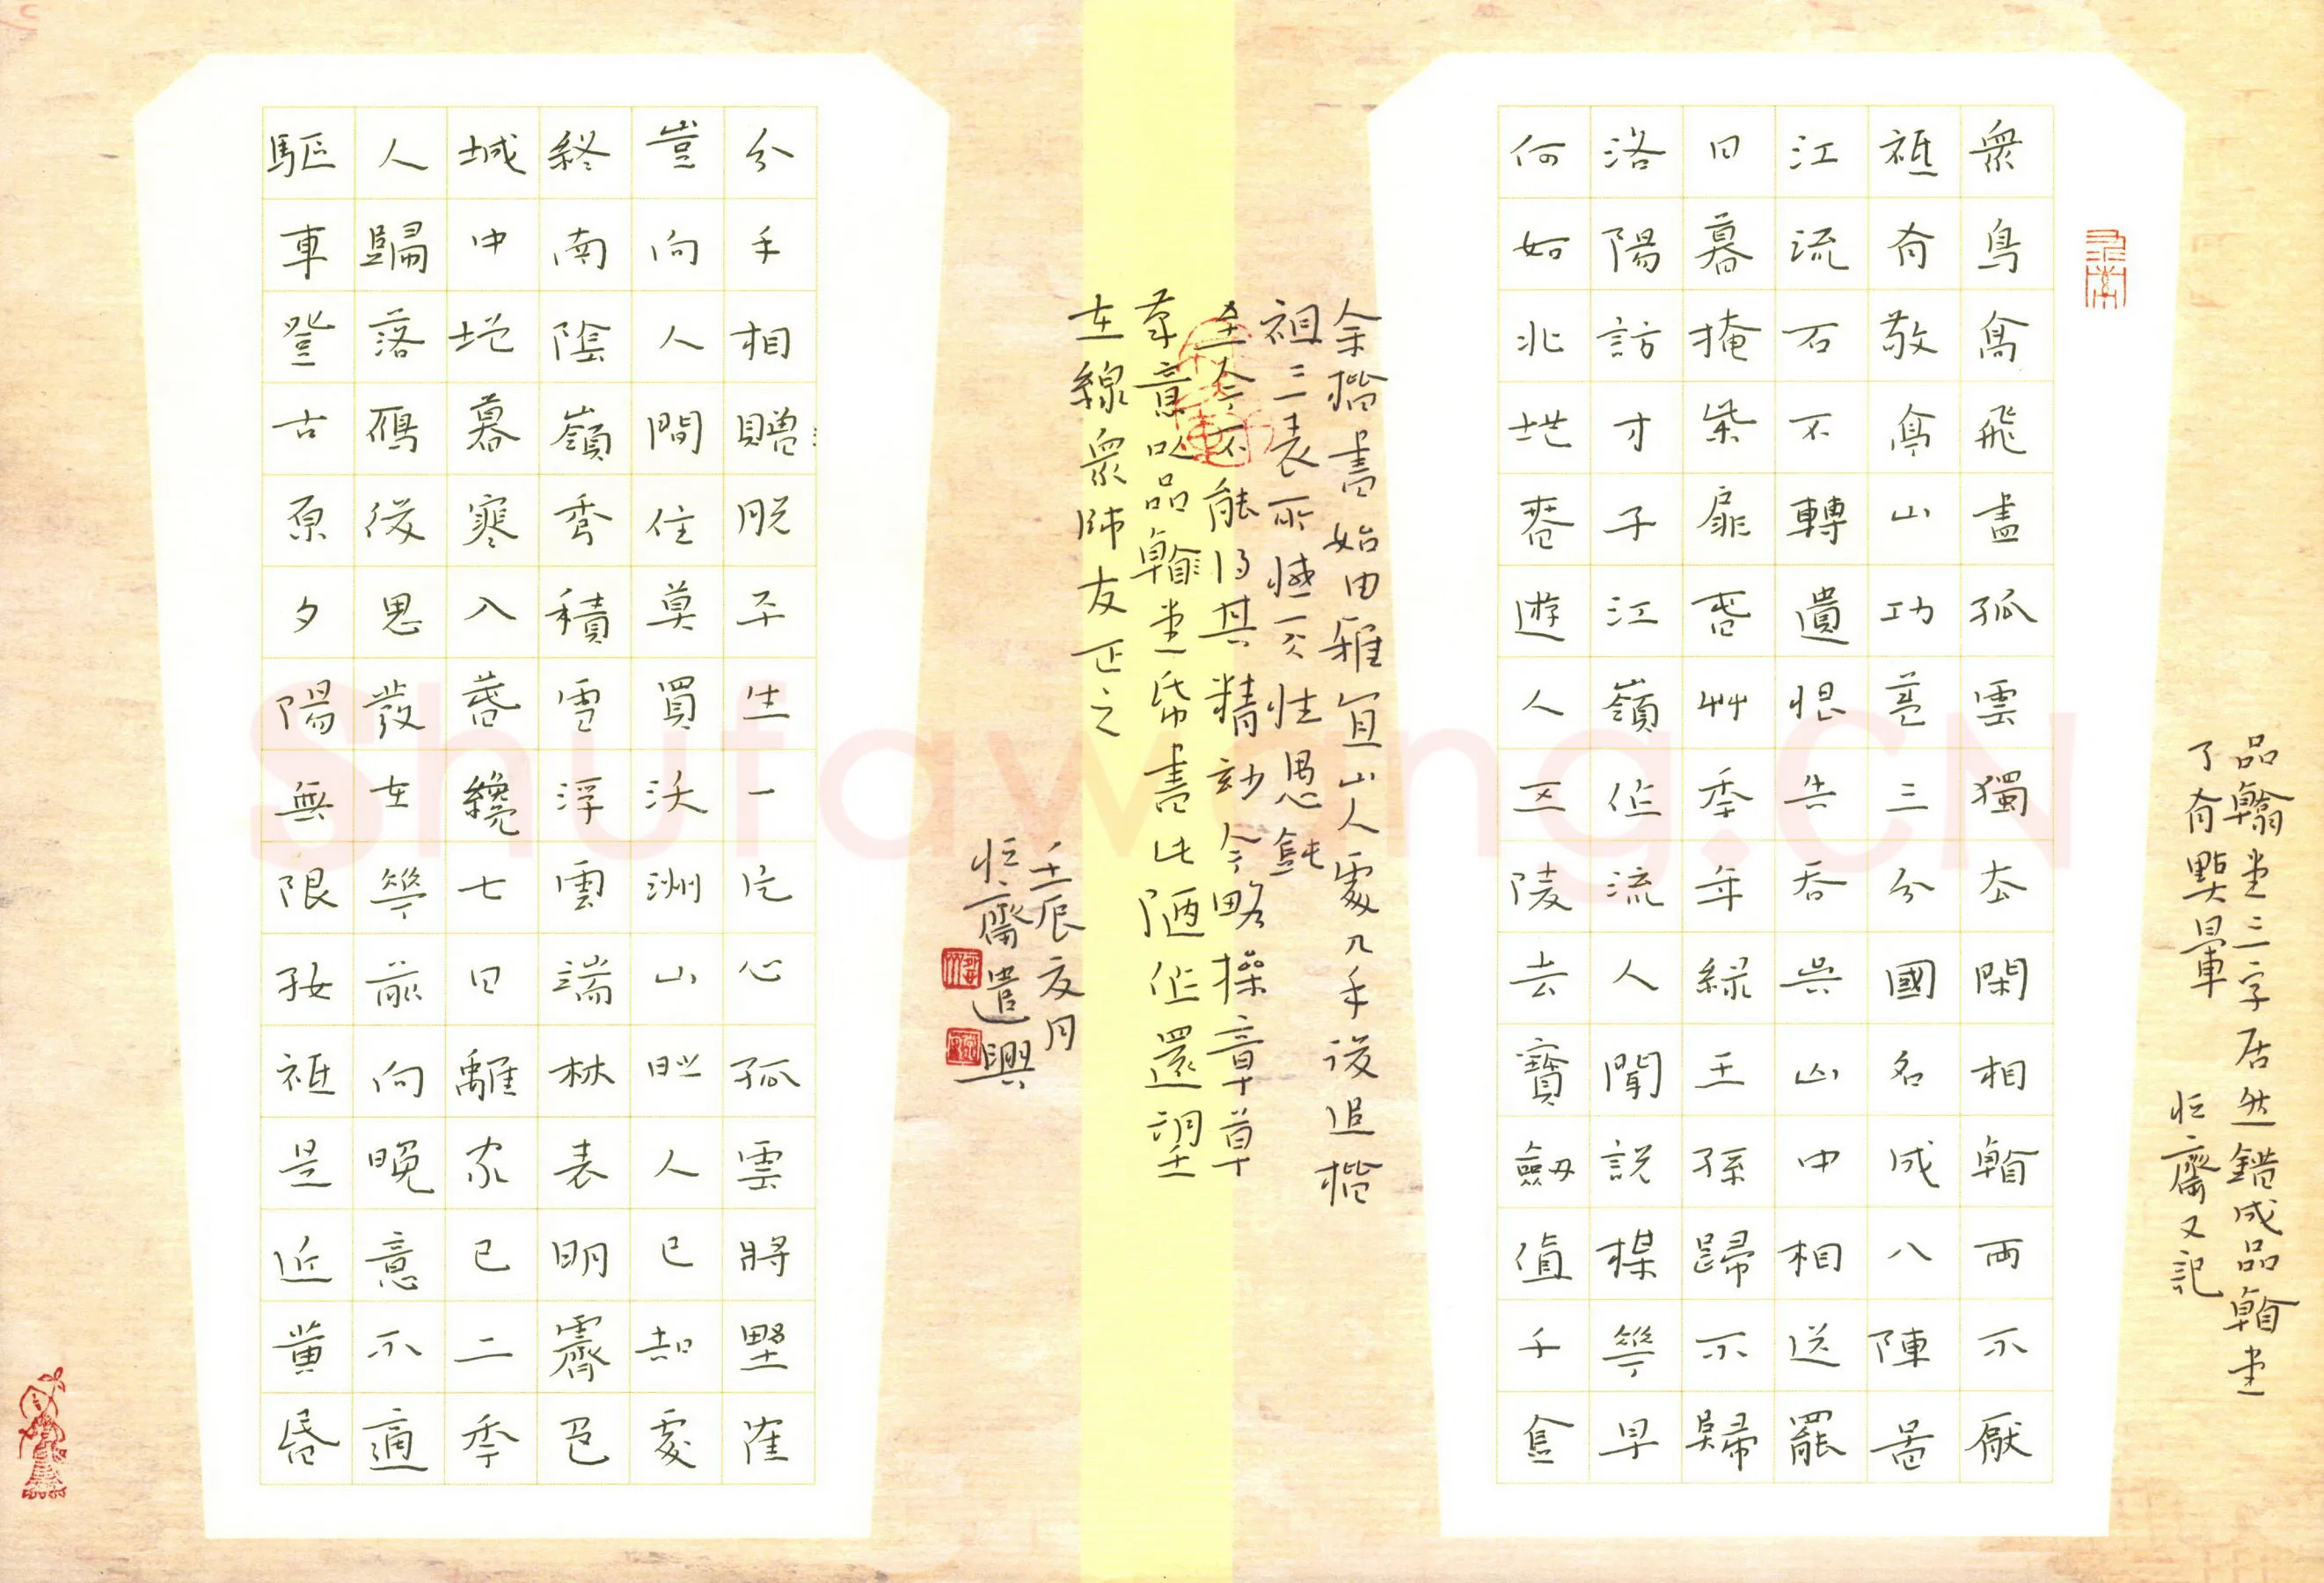 品翰堂三字居然錯成品翰堂
了有點暈 恆齋又記
眾鳥高飛盡孤雲獨去閑相看兩不厭
祗有敬亭山功蓋三分國名成八陣圖
江流石不轉遺恨失吞吳山中相送罷
日暮掩柴扉春艸年年綠王孫歸不歸
洛陽訪才子江嶺作流人聞說楳花早
何如北地春遊人五陵去寶劍值千金
余楷書始由雅宜山人處入手後追楷
祖三表所憾天性愚鈍
至今不能得其精妙今略摻章草
筆意以品翰堂帋書此陋作還望
在線眾師友正之
壬辰夏月
恆齋遣興
分手相贈脫平生一片心孤雲將野隺
豈向人間住莫買沃洲山時人已知處
終南陰嶺秀積雪浮雲端林表明霽色
城中增暮寒入春纔七日離家已二年
人歸落鴈後思發在花前向晚意不適
驅車登古原夕陽無限好祗是近黃昏
Shufawang.CN